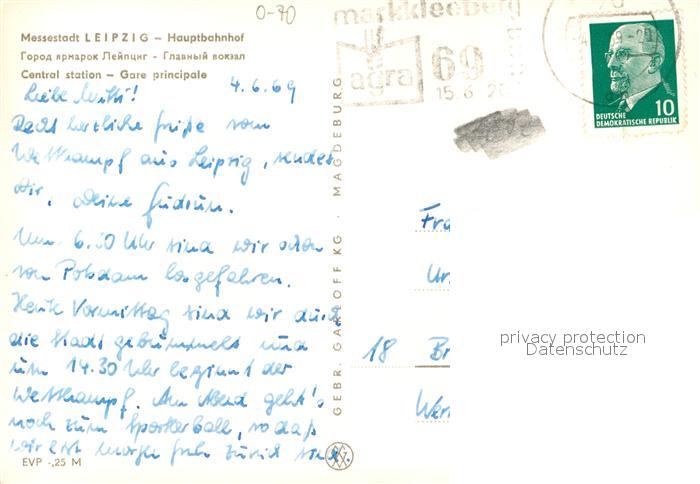 0-70
Messestadt LEIPZIG – Hauptbahnhof
Город ярмарок Лейпциг - Главный вокзал
Central station – Gare principale
4.6.69
Liebe Mutti!
Recht herzliche Grüße vom
Wettkampf aus Leipzig, sendet
Dir, Deine Gudrun.
Um 6.30 Uhr sind wir schon
von Potsdam losgefahren.
Heute Vormittag sind wir durch
die Stadt gebummelt und
um 14.30 Uhr beginnt der
Wettkampf. Am Abend geht's
noch zum Sportlerball, so daß
wir erst morgen früh zurück sind.
EVP -,25 M
GEBR. GARLOFF KG · MAGDEBURG
markkleeberg
agra
69
15.6.
DEUTSCHE
DEMOKRATISCHE REPUBLIK
10
Fra
18 Br
Wer
privacy protection
Datenschutz